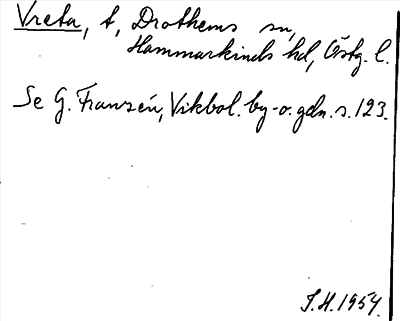 Vreta, t, Drothems sn,
Hammarkinds hd, Östg. l.
Se G. Franzén, Vikbol. by- o. gdn. s. 123.
S.H. 1954.